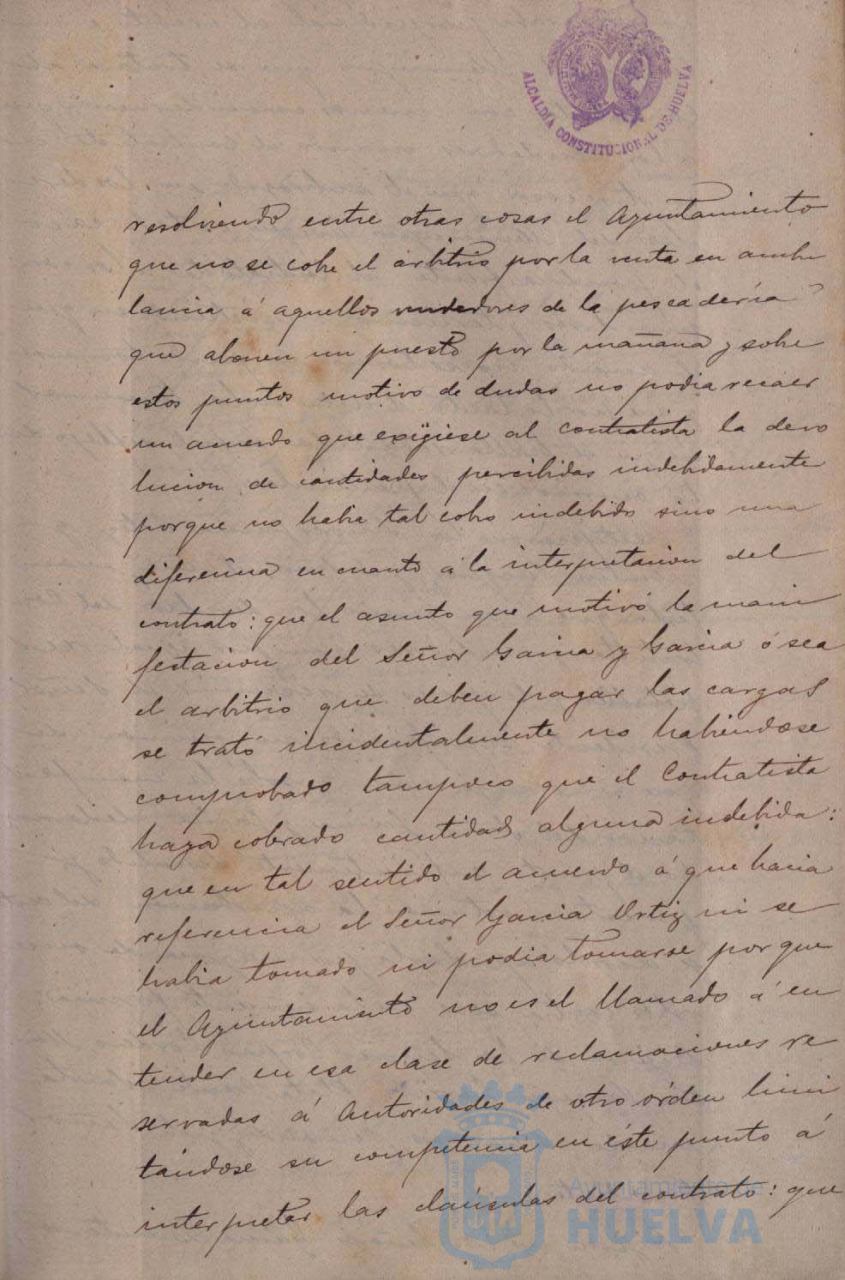 ALCALDÍA CONSTITUCIONAL DE HUELVA
resolviendo entre otras cosas el Ayuntamiento
que no se cobre el árbitrio por la venta en ambu
lancia á aquellos vendedores de la pescadería
que abonen un puesto por la mañana y sobre
estos puntos motivo de dudas no podia recaer
un acuerdo que exijiese al contratista la devo
lucion de cantidades percibidas indebidamente
porque no habia tal cobro indebido sino una
diferencia en cuanto á la interpretacion del
contrato: que el asunto que motivó la mani
festacion del Señor Garcia y Garcia ó sea
el arbitrio que deben pagar las cargas
se trató incidentalmente no habiéndose
comprobado tampoco que el Contratista
haya cobrado cantidad alguna indebida:
que en tal sentido el acuerdo á que hacia
referencia el Señor Garcia Ortiz ni se
habia tomado ni podia tomarse por que
el Ayuntamiento no es el llamado á en
tender en esa clase de reclamaciones re
servadas á Autoridades de otro órden limi
tándose su competencia en éste punto á
interpretar las claúsulas del contrato: que
Ayuntamiento de
HUELVA